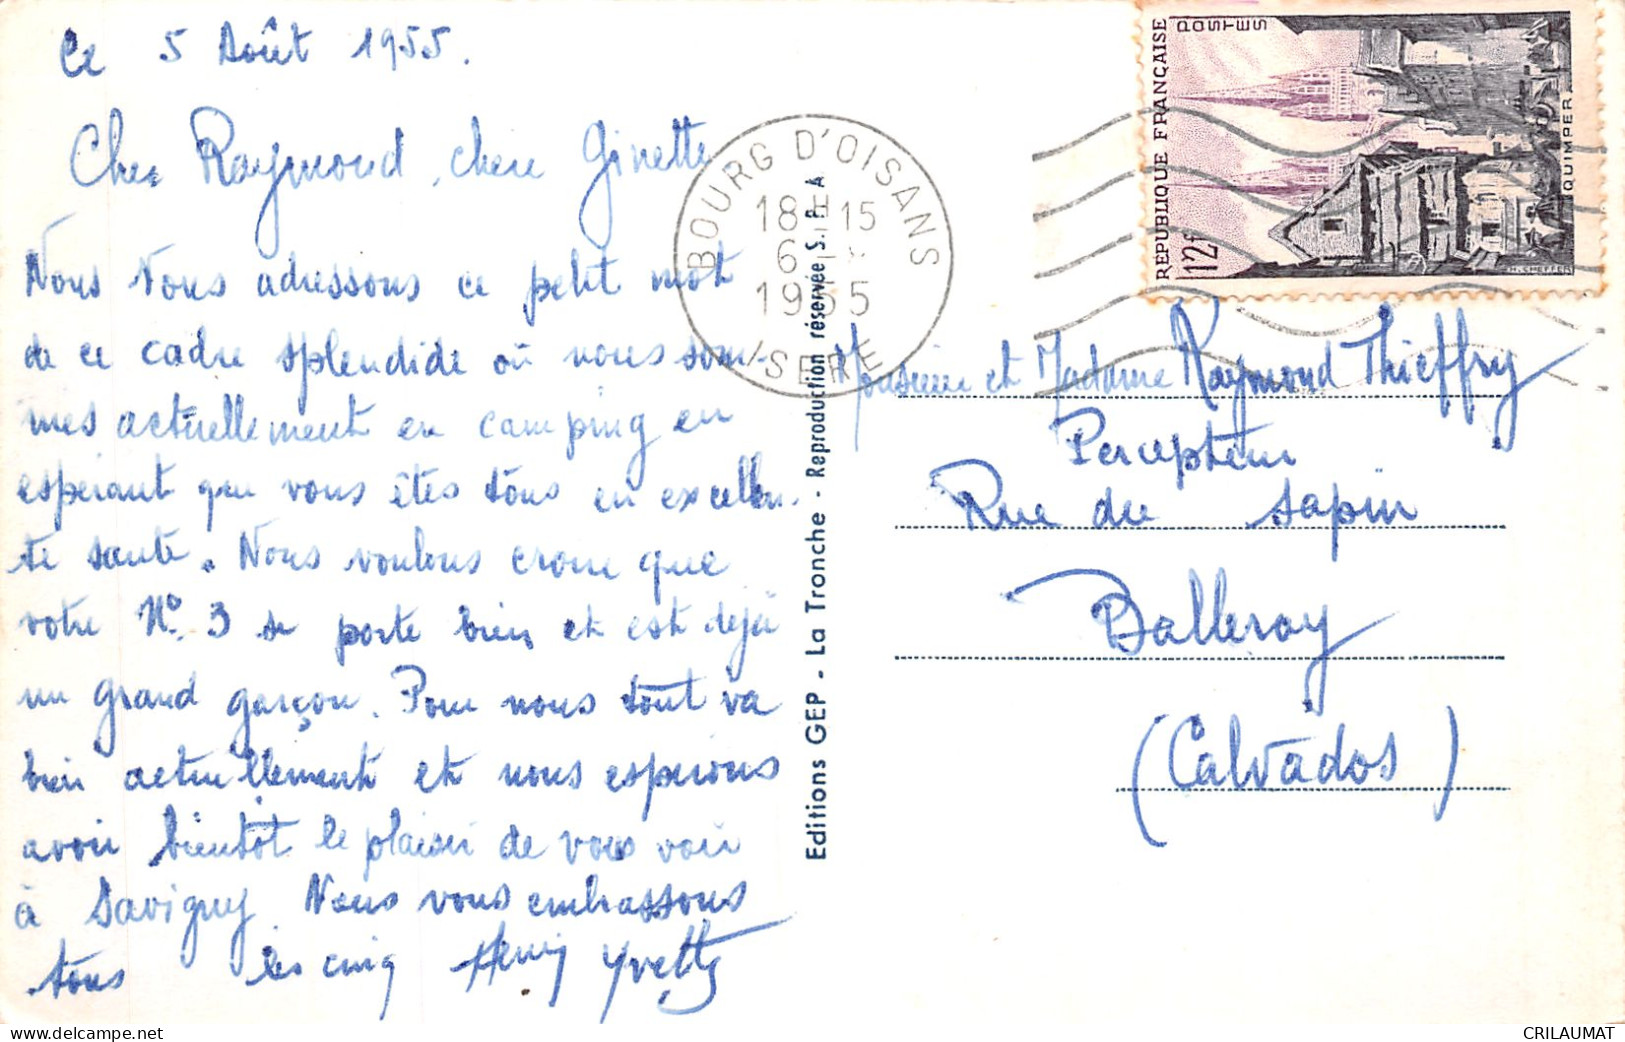 Ce 5 Août 1955.
Cher Raymond, chere Ginette
Nous Vous adressons ce petit mot
de ce cadre splendide où nous som-
mes actuellement en camping en
espérant que vous êtes tous en excellen-
te santé. Nous voulons croire que
votre N° 3 se porte bien et est dejà
un grand garçon. Pour nous tout va
bien actuellement et nous esperons
avoir bientôt le plaisir de vous voir
à Savigny Nous vous embrassons
tous les cinq Henri Yvette
Editions GEP - La Tronche - Reproduction réservée S.P.A
BOURG D'OISANS
18H15
6
1955
ISERE
REPUBLIQUE FRANÇAISE
POSTES
12f
QUIMPER
H. CHEFFER
Monsieur et Madame Raymond Thieffry
Percepteur
Rue du Sapin
Balleroy
(Calvados)
CRILAUMAT